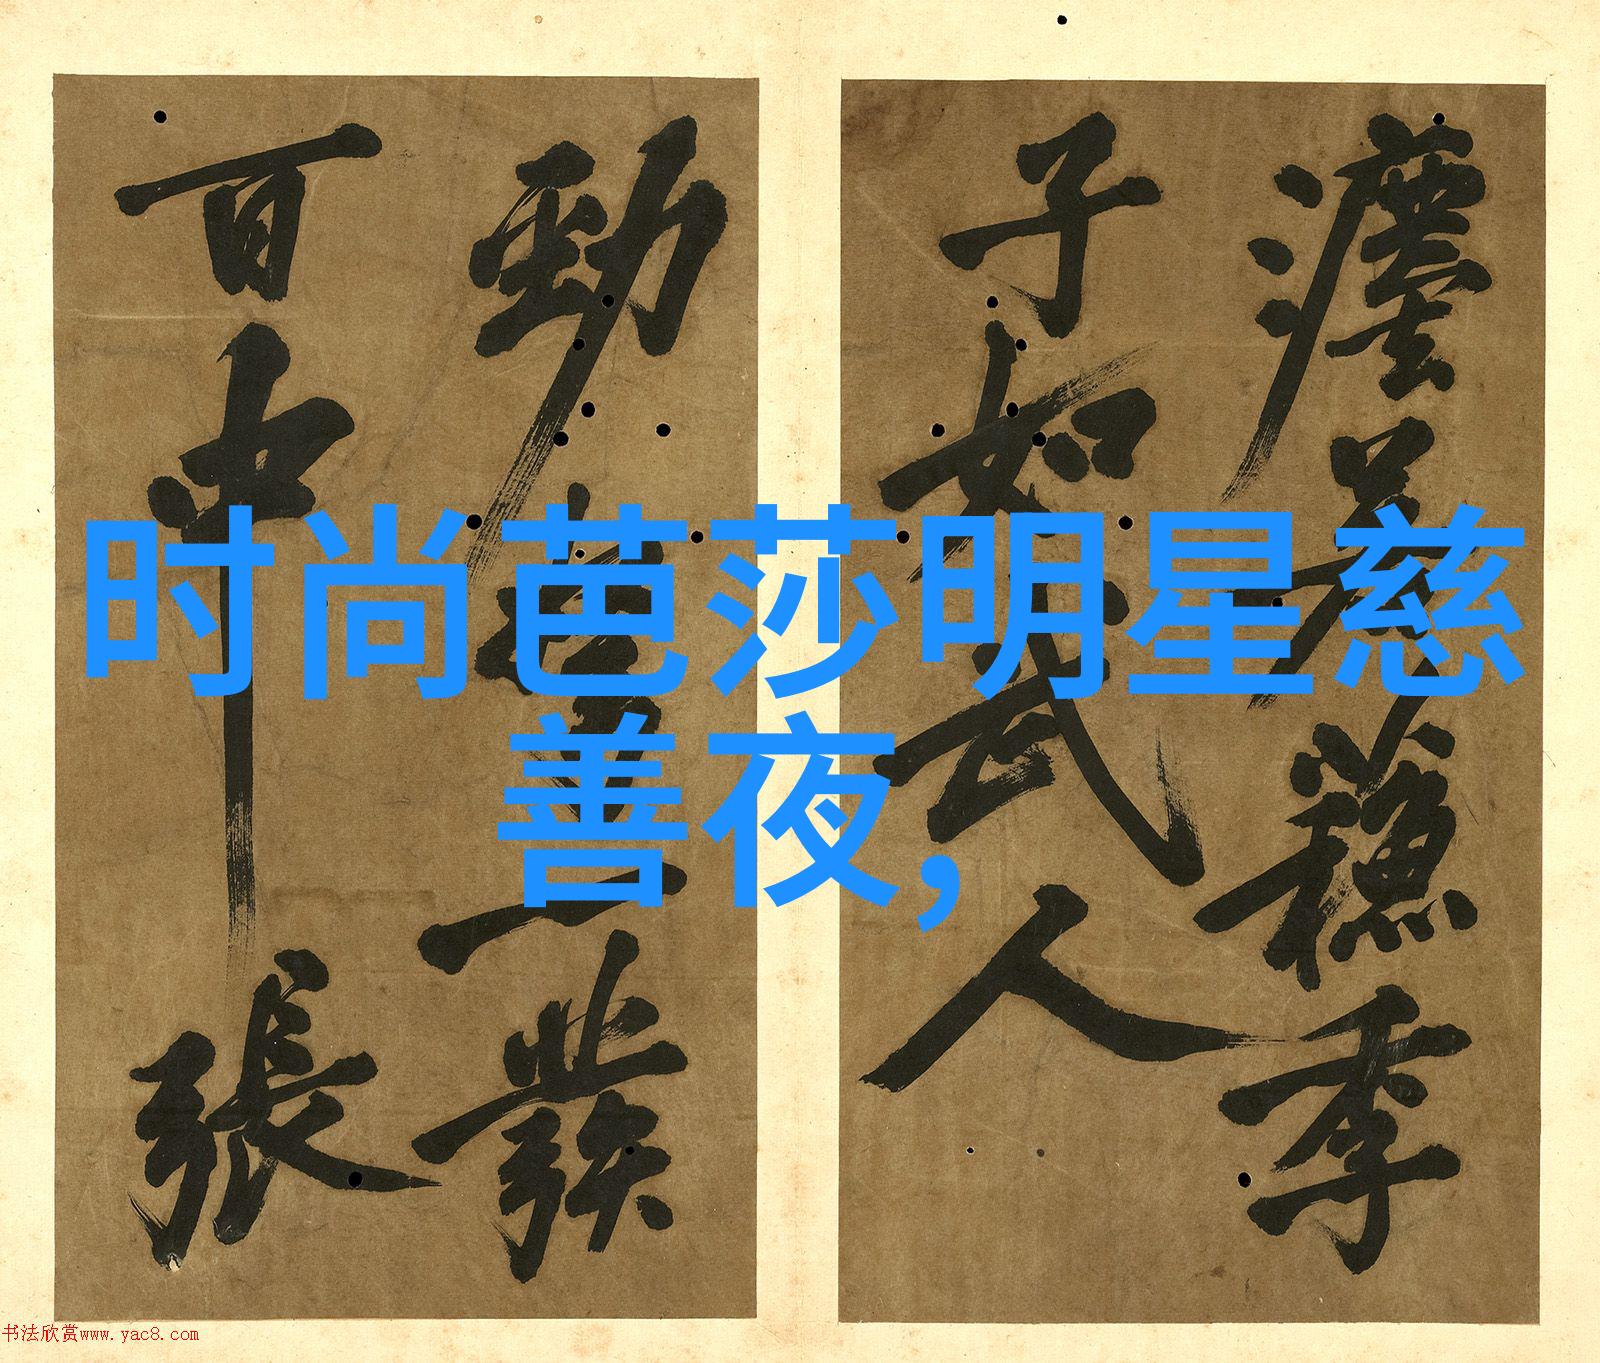 时尚芭莎明星慈
善夜,
蘓季
子如武人
勁一發
百中張
书法欣赏www.yac8.com